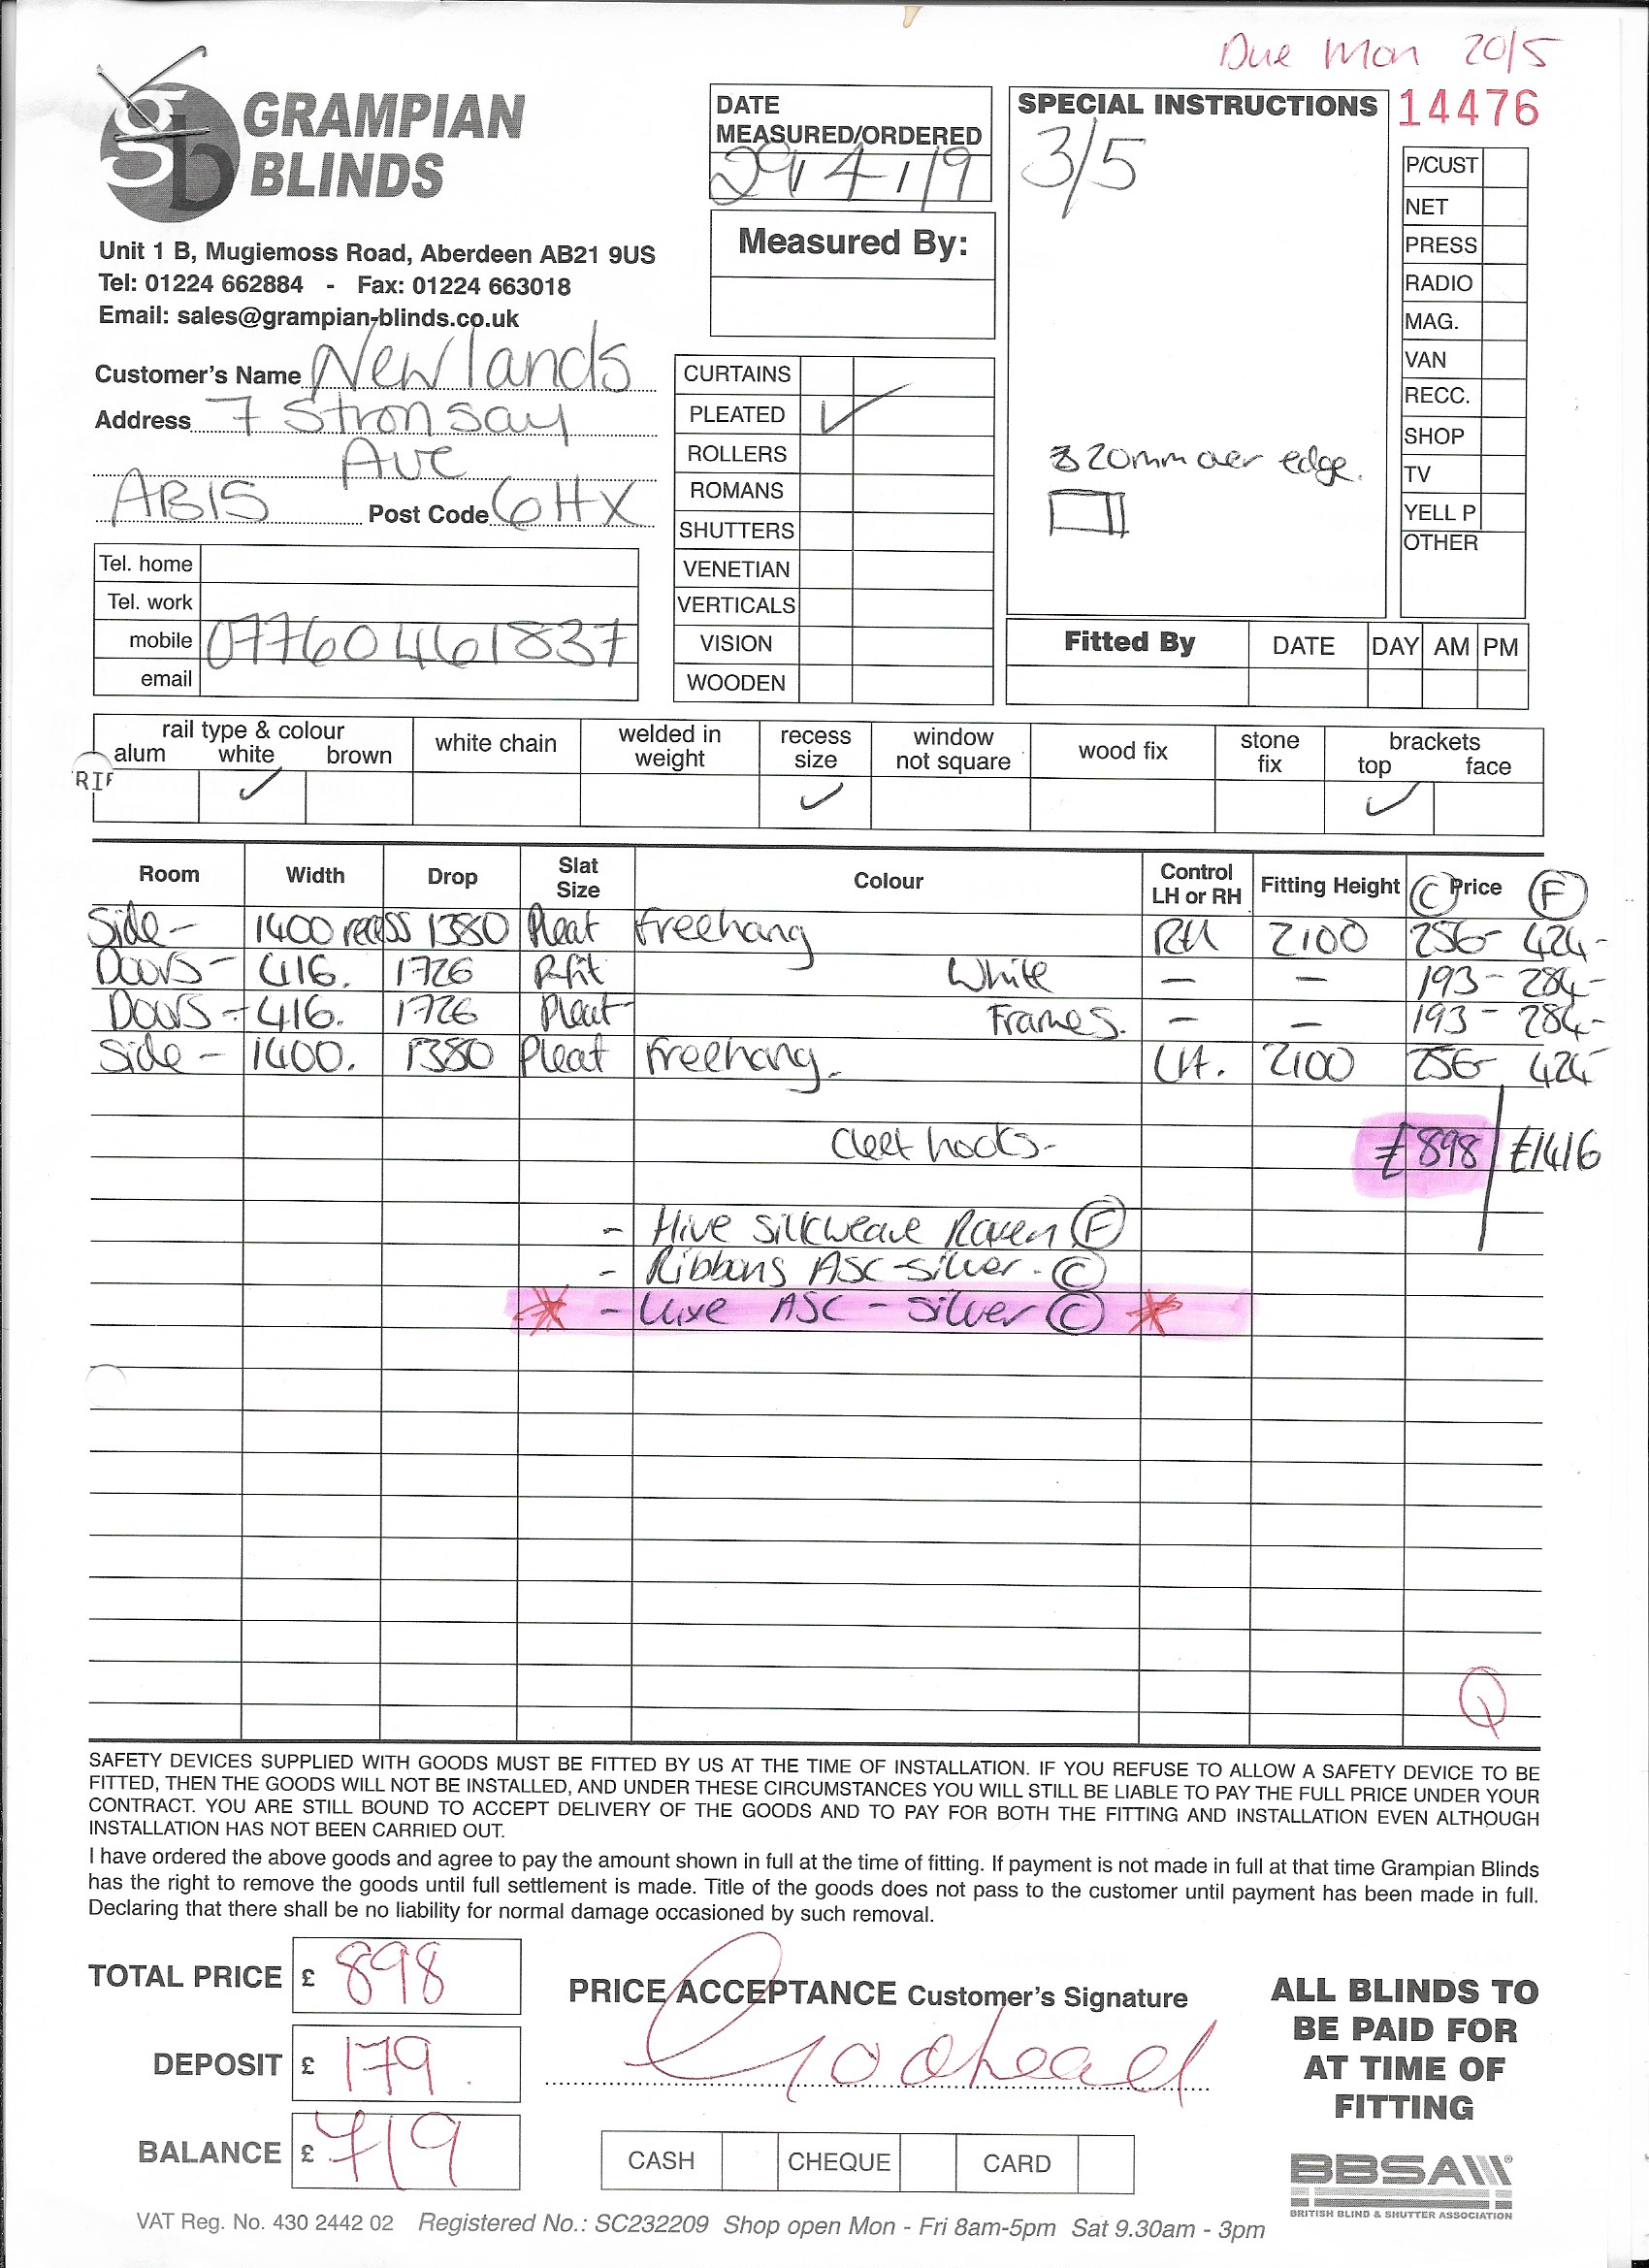 Due Mon 20/5
GRAMPIAN
BLINDS
Unit 1 B, Mugiemoss Road, Aberdeen AB21 9US
Tel: 01224 662884 - Fax: 01224 663018
Email: sales@grampian-blinds.co.uk
Customer's Name Newlands
Address 7 Stronsay
Ave
AB15 Post Code 6HX
Tel. home
Tel. work
mobile 07760461837
email
DATE
MEASURED/ORDERED
29/4/19
Measured By:
CURTAINS
PLEATED ✓
ROLLERS
ROMANS
SHUTTERS
VENETIAN
VERTICALS
VISION
WOODEN
SPECIAL INSTRUCTIONS
3/5
20mm over edge.
14476
P/CUST
NET
PRESS
RADIO
MAG.
VAN
RECC.
SHOP
TV
YELL P
OTHER
Fitted By DATE DAY AM PM
rail type & colour
alum white brown
white chain
welded in weight
recess size
window not square
wood fix
stone fix
brackets
top face
✓ ✓ ✓
Room Width Drop Slat Size Colour Control LH or RH Fitting Height (C) Price (F)
Side - 1400 recess 1380 Pleat Freehang RH 2100 256- 424-
Doors - 416. 1726 P-fit White - - 193- 284-
Doors - 416. 1726 Pleat Frames. - - 193- 284-
Side - 1400. 1380 Pleat Freehang. LH. 2100 256- 424-
Cleet hooks- £898 £1416
- Hive Silkweave Raven (F)
- Ribbons ASC-silver. (C)
* - Luxe ASC - Silver (C) *
Q
SAFETY DEVICES SUPPLIED WITH GOODS MUST BE FITTED BY US AT THE TIME OF INSTALLATION. IF YOU REFUSE TO ALLOW A SAFETY DEVICE TO BE
FITTED, THEN THE GOODS WILL NOT BE INSTALLED, AND UNDER THESE CIRCUMSTANCES YOU WILL STILL BE LIABLE TO PAY THE FULL PRICE UNDER YOUR
CONTRACT. YOU ARE STILL BOUND TO ACCEPT DELIVERY OF THE GOODS AND TO PAY FOR BOTH THE FITTING AND INSTALLATION EVEN ALTHOUGH
INSTALLATION HAS NOT BEEN CARRIED OUT.
I have ordered the above goods and agree to pay the amount shown in full at the time of fitting. If payment is not made in full at that time Grampian Blinds
has the right to remove the goods until full settlement is made. Title of the goods does not pass to the customer until payment has been made in full.
Declaring that there shall be no liability for normal damage occasioned by such removal.
TOTAL PRICE £ 898
DEPOSIT £ 179.
BALANCE £ 719
PRICE ACCEPTANCE Customer's Signature
Goahead
CASH CHEQUE CARD
ALL BLINDS TO
BE PAID FOR
AT TIME OF
FITTING
BBSA
BRITISH BLIND & SHUTTER ASSOCIATION
VAT Reg. No. 430 2442 02 Registered No.: SC232209 Shop open Mon - Fri 8am-5pm Sat 9.30am - 3pm